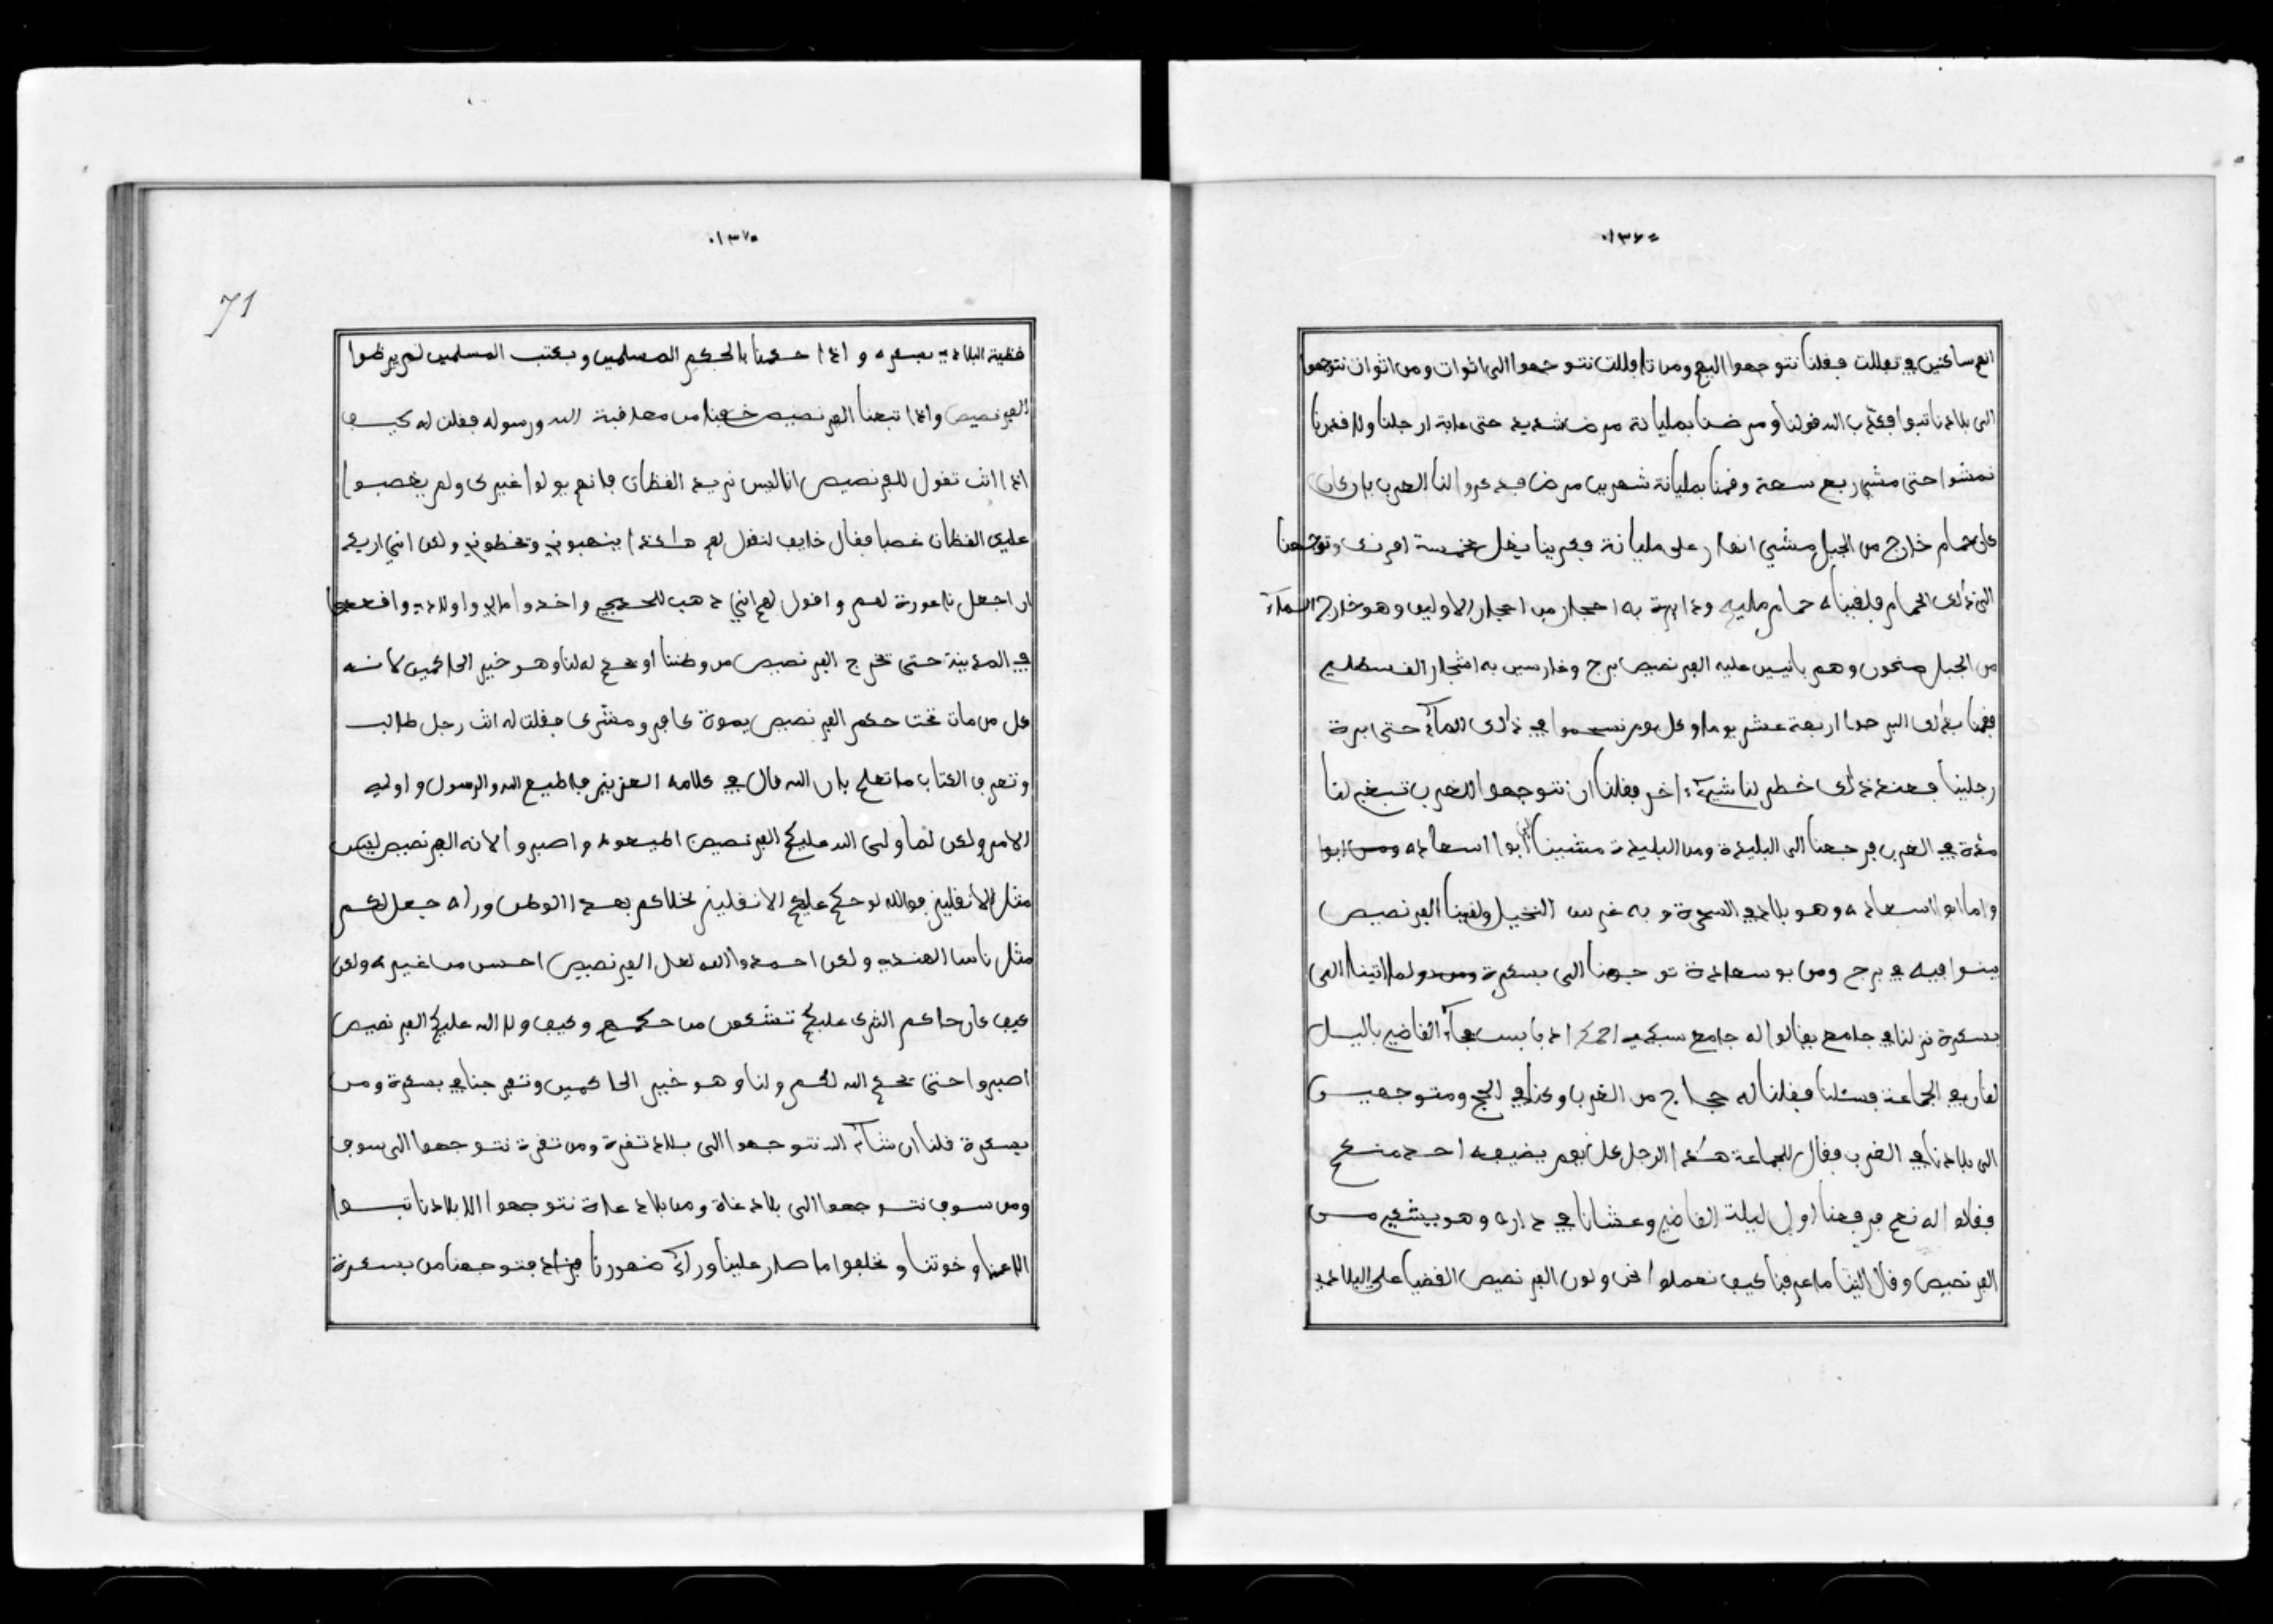 ٠١٣٦٠
انهم ساكنين في تقللت فقلنا نتوجهوا اليهم ومن تافللت نتوجهوا الى اتوات ومن اتوات نتوجهوا
الى بلادنا تنبوا فكذب الله قولنا ومرضنا بمليانة مرض شديد حتى عابة ارجلنا ولا قدرنا
نمشوا حتى مشي ربع سعة وقمنا بمليانة شهرين مرض فدكروا لنا العرب بان كان
كان حمام خارج من الجبل مشي انهار على مليانة فكرينا بغل بخمسة افرنك وتوجهنا
الى ذلك الحمام فلقيناه حمام مليه ودايرة به احجار من احجار الاولين وهو خارج الماء
من الجبل سخون وهم بانيين عليه الفرنصيص برج وغارسين به اشجار القسطلي
فقمنا بذلك البرج اربعة عشر يوما وكل يوم نسحموا في ذلك الماء حتى ابرة
رجلينا فعند ذلك خطر لنا شيء اخر فقلنا ان نتوجهوا للغرب تبغى لنا
مدة في الغرب فرجعنا الى البليدة ومن البليدة مشينا الى ابوا اسعاده ومن ابوا
واما ابوا اسعاده وهو بلاد في السحرة و به غرس النخيل ولقينا الفرنصيص
يبنوا فيه في برج ومن بوسعادة توجهنا الى بسكرة ولما اتينا الى
بسكرة نزلنا في جامع يقالوا له جامع سيدي احمد ابا بسب فجاء القاضي باليل
لقاريه الجماعة فسئلنا فقلنا له حجاج من الغرب وكنا في الحج ومتوجهين
الى بلادنا في الغرب فقال للجماعة هذا الرجل كل يوم يضيفه احد منكم
فقالوا له نعم فرفعنا اول ليلة القاضي وعشانا في داره وهو يشتكي من
الفرنصيص وقال الينا ما عرفنا كيف نعملوا نحن ولون الفرنصيص القضيا على البلادي
٠١٣٧٠
71
قظية البلادي بسكره و اذا حكمنا بالحكم المسلمين وبكتب المسلمين لم يرظوا
الفرنصيص واذا تبعنا الفرنصيص خفنا من معاقبة الله ورسوله فقلت له كيف
اذا انت تقول للفرنصيص انا ليس نريد القظان فانهم يولوا غيرك ولم يغصبوا
عليك القظان غصبا فقال خايف لنقول لهم هاكذا ينهبوني ويخطوني ولكن اني اريد
ان اجعل ناعورة لهم و اقول لهم اني ذهب للحج واخذوا مالي واولادي واقعدوا
في المدينة حتى تخرج الفرنصيص من وطننا او يحكم له لنا وهو خير الحاكمين لانه
كل من مات تحت حكم الفرنصيص يموة كافر ومشرك فقلت له انت رجل طالب
وتعرف الكتاب ما تعلم بان الله قال في كلامه العزيز فاطيع الله والرسول و اولي
الامر ولكن لما ولى الله عليكم الفرنصيص المسعود واصبروا لانه الفرنصيص ليس
مثل الانقليز فوالله لو حكم عليكم الانقليز لخلاكم بعد الوطن وراه جعل لكم
مثل ناس الهندي ولكن احمدوا الله لعل الفرنصيص احسن من غيره ولكن
كيف كان حاكم الترك عليكم تشكون من حكمهم وكيف ولا الله عليكم الفرنصيص
اصبروا حتى يحكم الله لكم ولنا وهو خير الحاكمين وتفرجنا في بسكرة ومن
بسكرة قلنا ان شاء الله نتوجهوا الى بلاد تقرة ومن تقرة نتوجهوا الى سوف
ومن سوف نتوجهوا الى بلاد غاة ومن بلاد غاة نتوجهوا الا بلادنا تنبوا
الاهنا وخوتنا ونخلفوا ما صار علينا وراء ضهورنا فتوجهنا من بسكرة